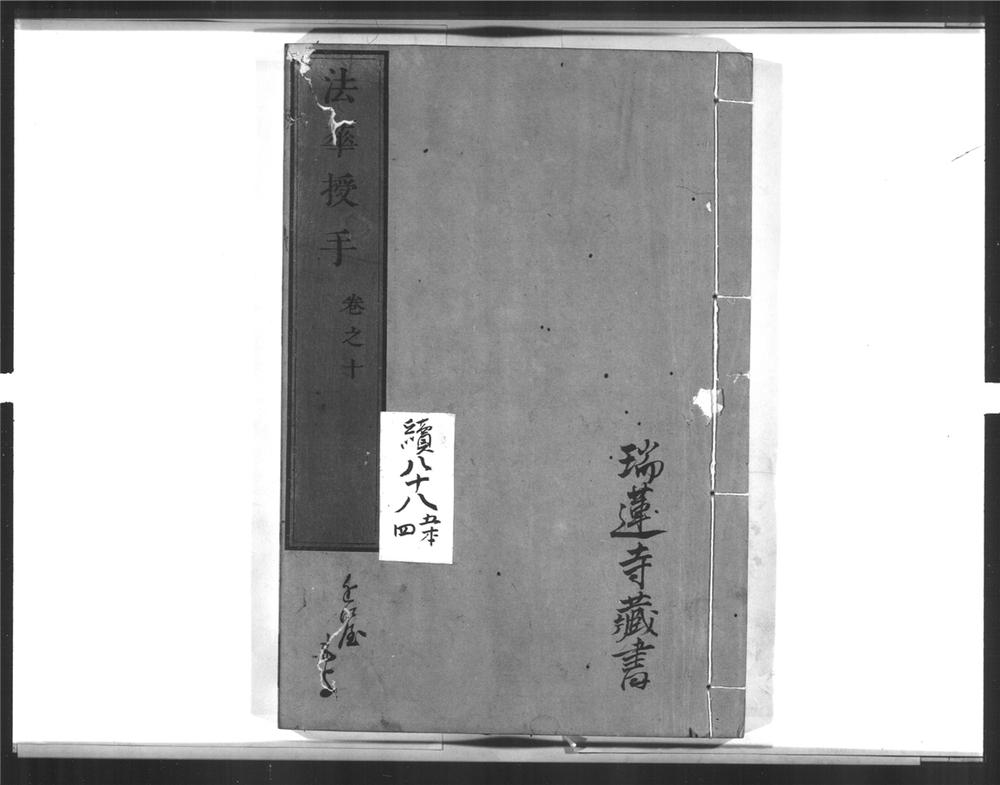 瑞蓮寺藏書
法華授手
卷之十
續八十八
五本
四
近江屋